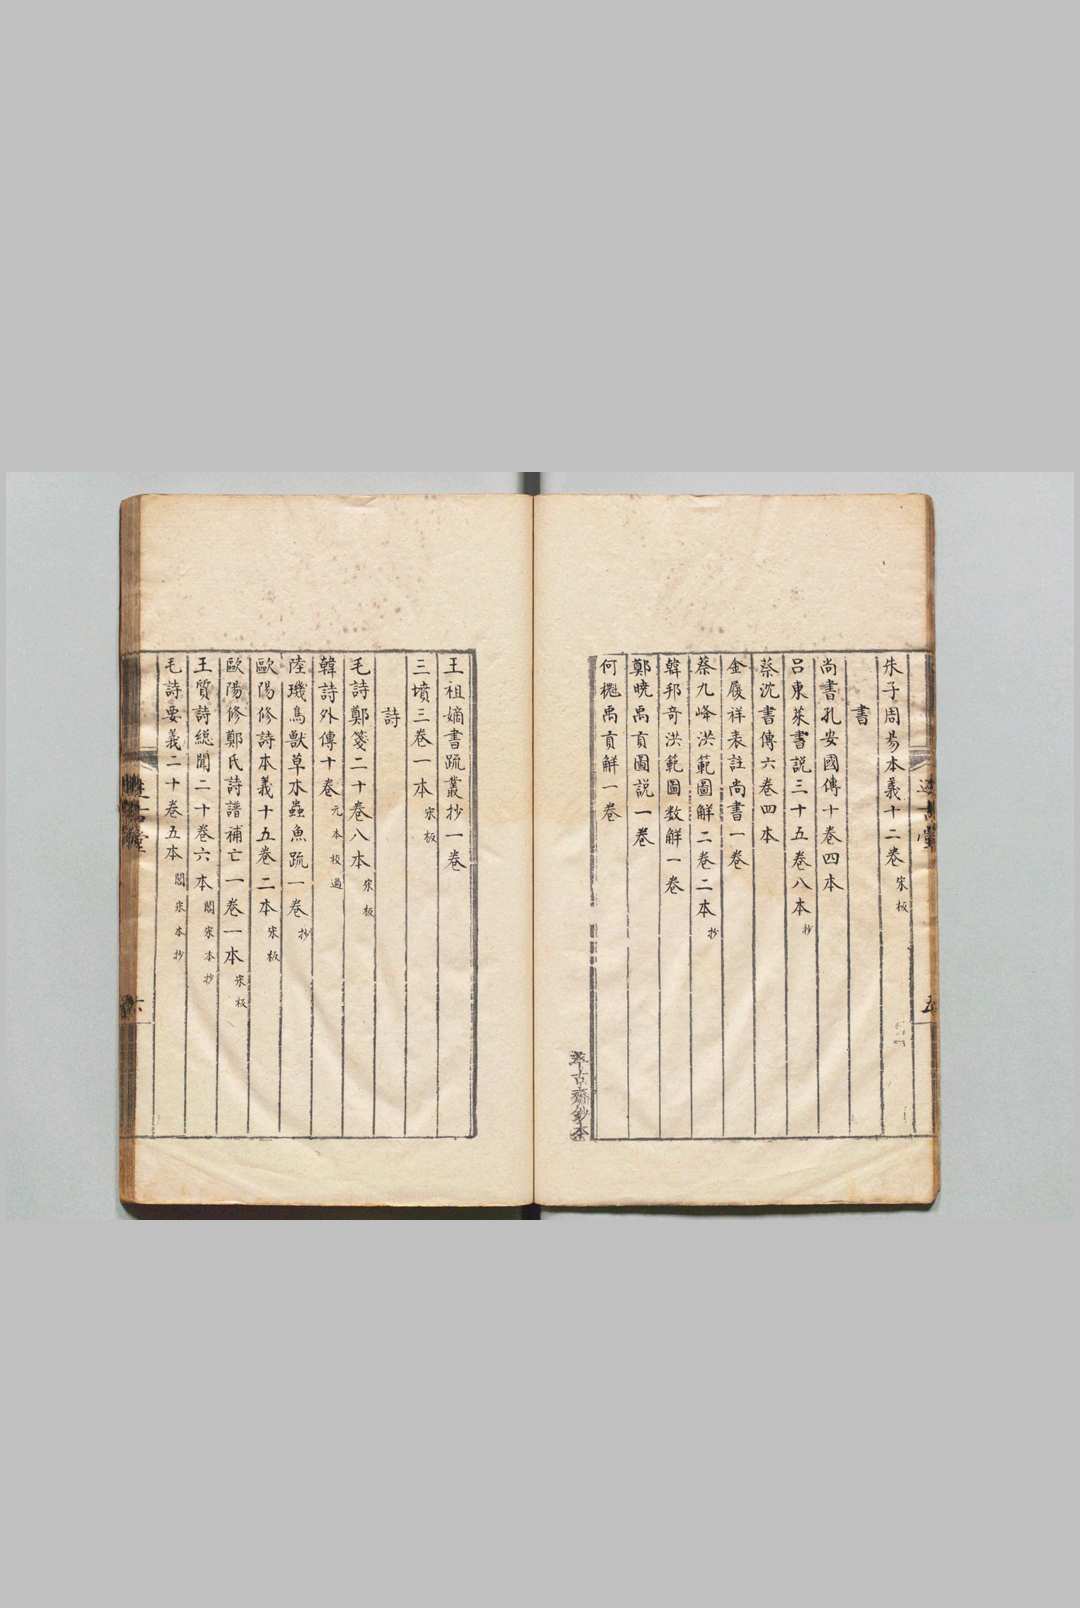 朱子周昜本義十二卷宋板
書
尚書孔安國傳十卷四本
呂東萊書説三十五卷八本抄
蔡沈書傳六卷四本
金履祥表註尚書一卷
蔡九峰洪範圖解二卷二本抄
韓邦竒洪範圖数解一卷
鄭曉禹貢圖説一卷
何櫆禹貢解一卷
萃古齋鈔本
王祖嫡書疏叢抄一卷
三墳三卷一本宋板
詩
毛詩鄭箋二十卷八本宋板
韓詩外傳十卷元本校過
陸璣鳥獸草木蟲魚疏一卷抄
歐陽修詩本義十五卷二本宋板
歐陽修鄭氏詩譜補亡一卷一本宋板
王質詩緫聞二十卷六本閣宋本抄
毛詩要義二十卷五本閣宋本抄
六